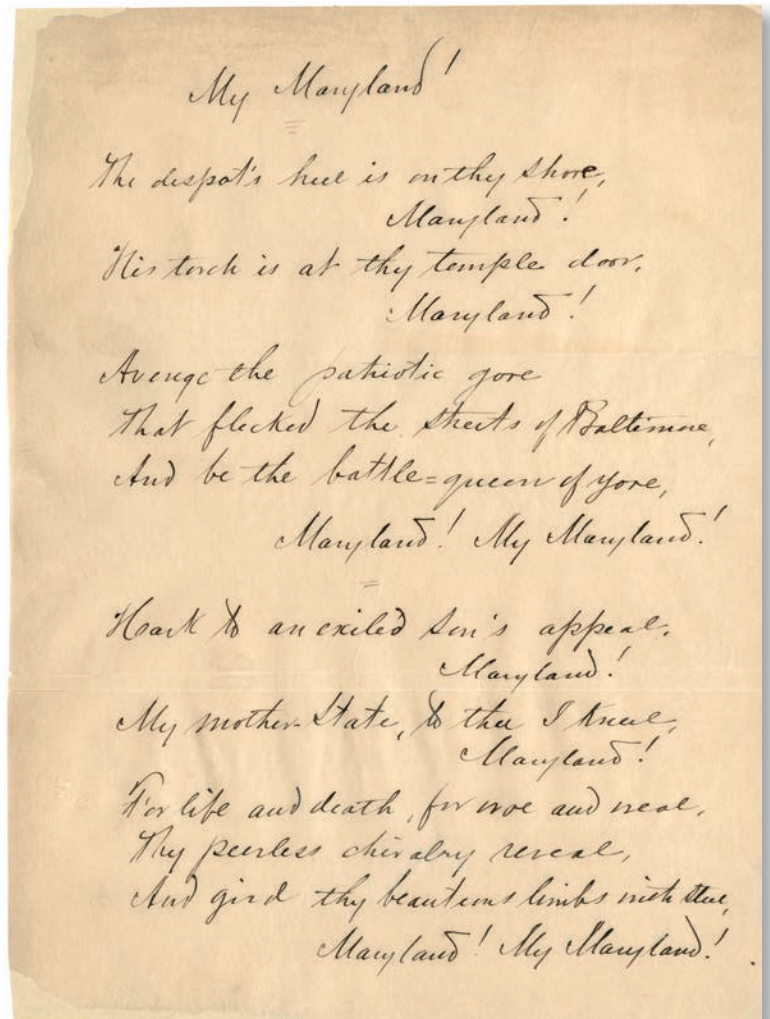 My Maryland!
The despot's heel is on thy shore,
Maryland!
His torch is at thy temple door,
Maryland!
Avenge the patriotic gore
That flecked the streets of Baltimore,
And be the battle=queen of yore,
Maryland! My Maryland!
Hark to an exiled son's appeal,
Maryland!
My mother-State, to thee I kneel,
Maryland!
For life and death, for woe and weal,
Thy peerless chivalry reveal,
And gird thy beauteous limbs with steel,
Maryland! My Maryland!